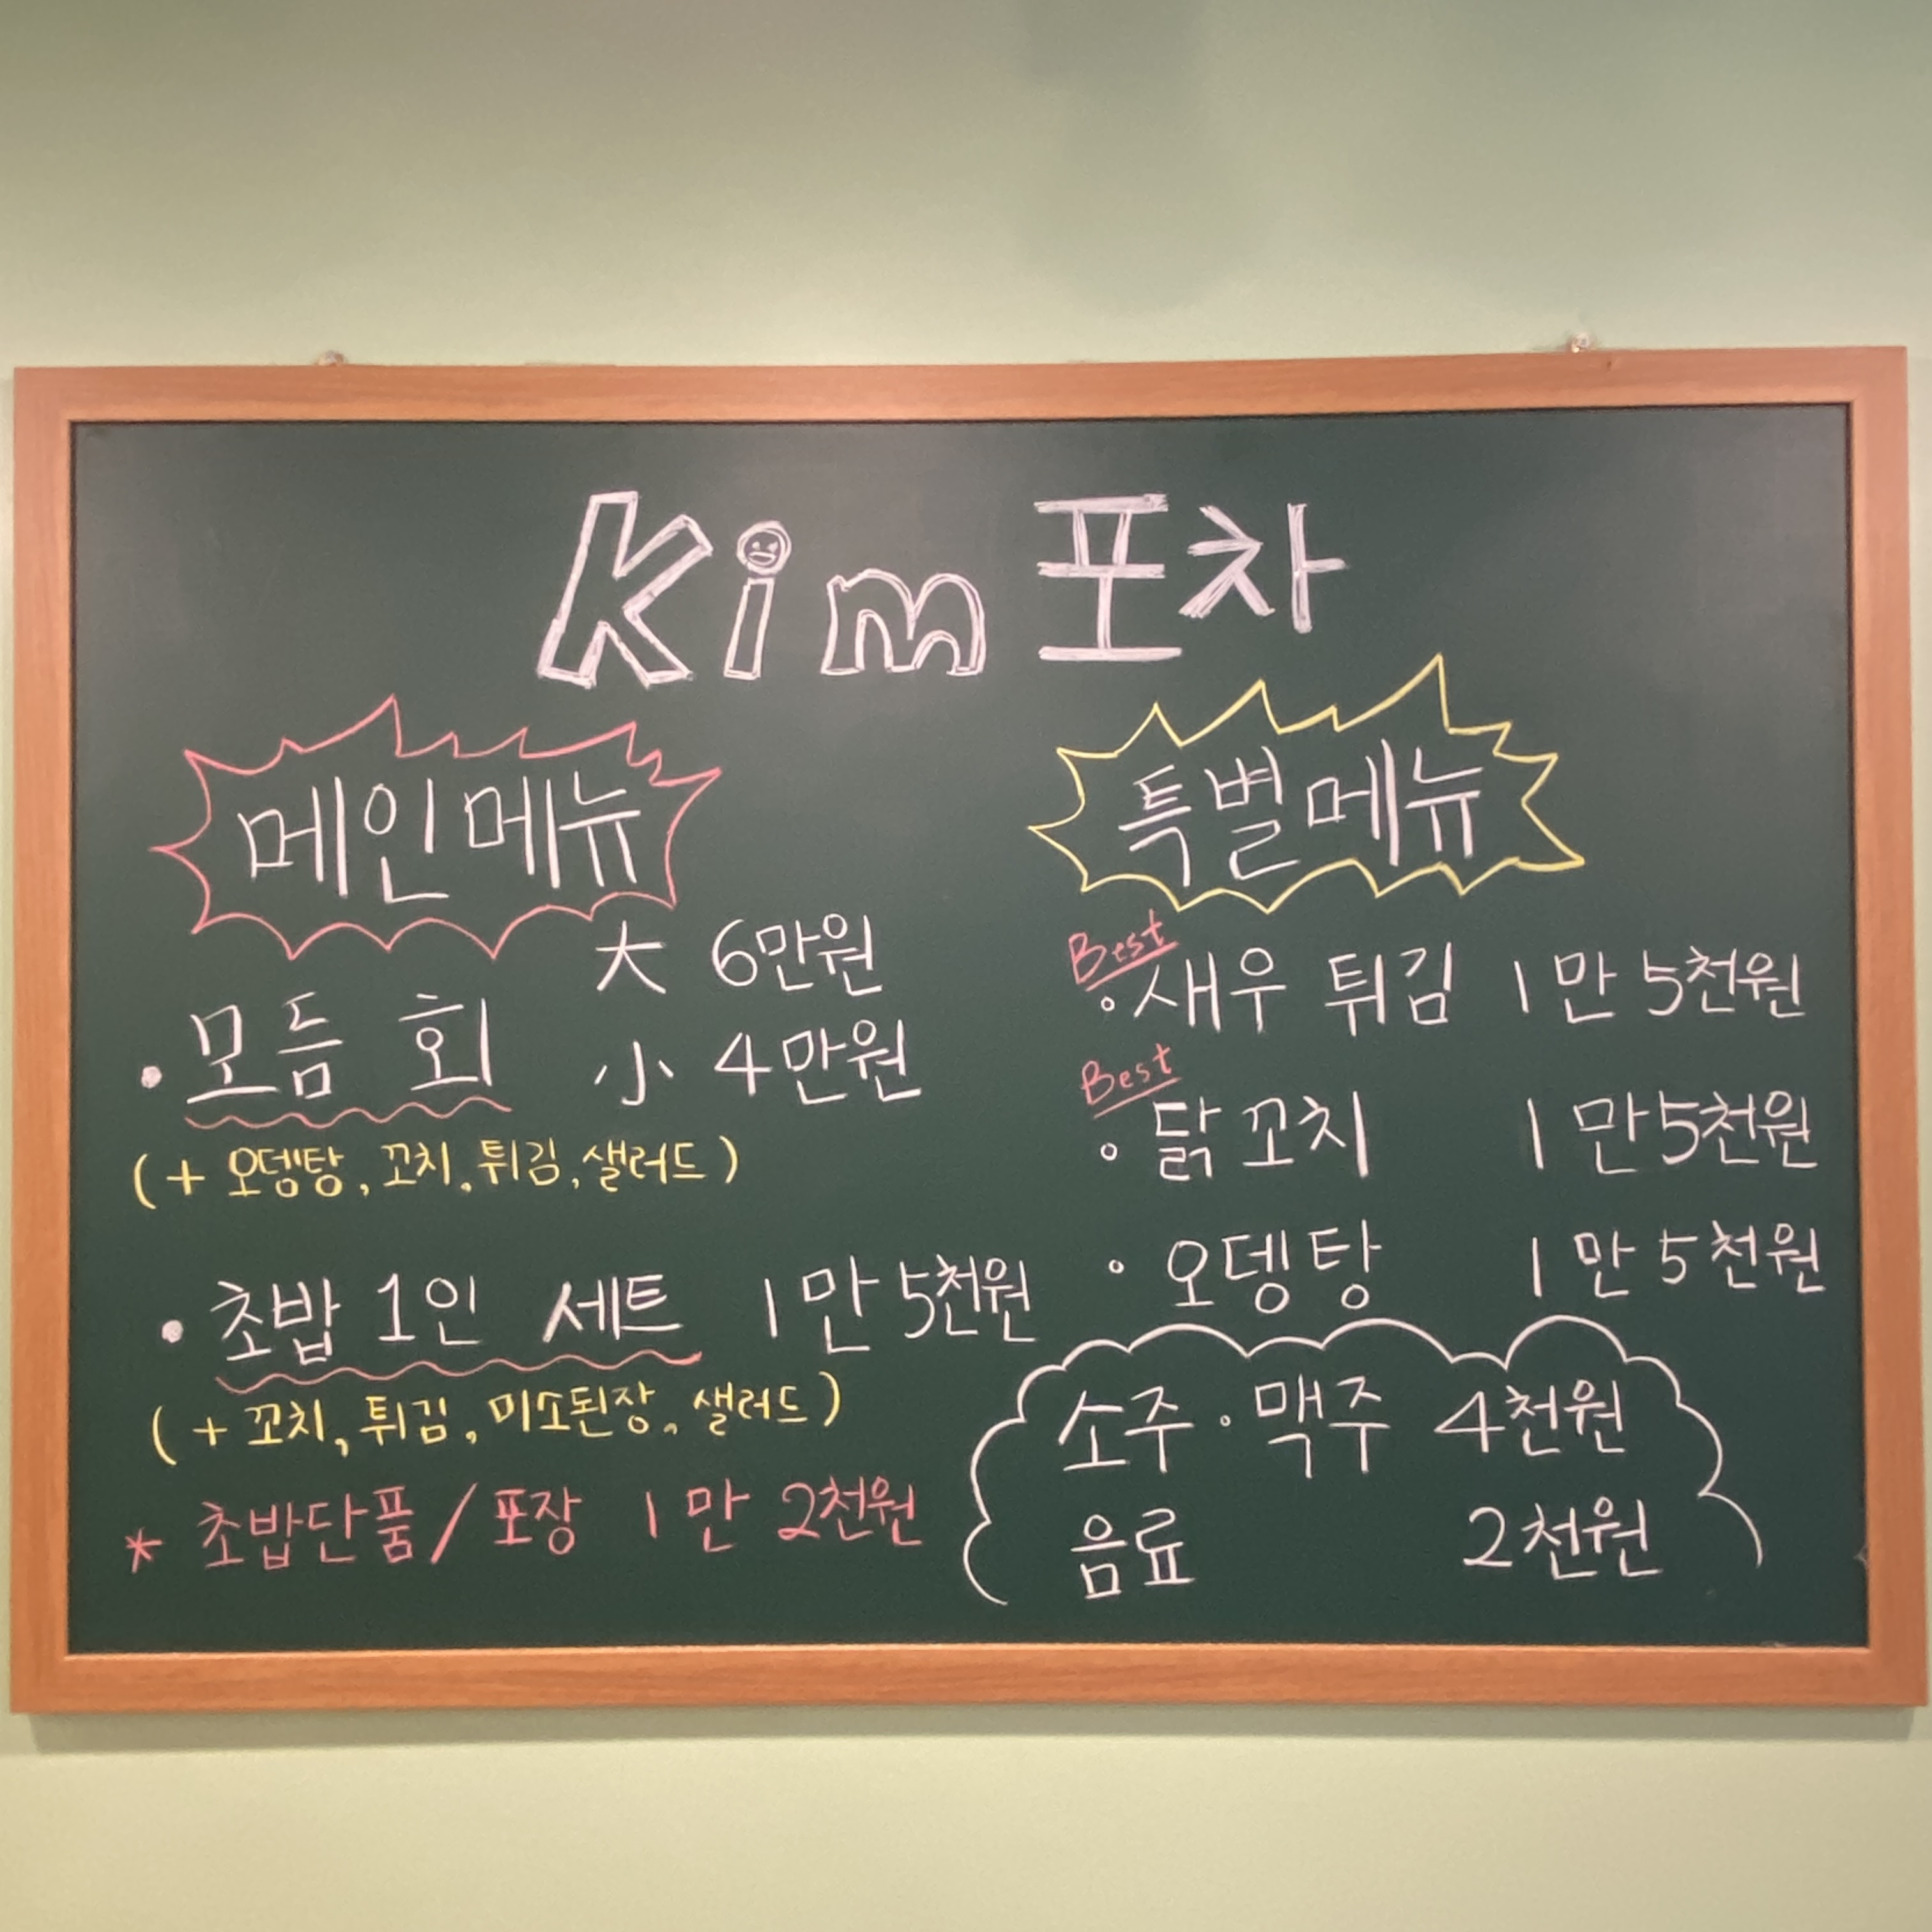 Kim 포차
메인메뉴
• 모듬 회
大 6만원
小 4만원
(+ 오뎅탕, 꼬치, 튀김, 샐러드)
• 초밥 1인 세트 1만 5천원
(+ 꼬치, 튀김, 미소된장, 샐러드)
* 초밥단품/포장 1만 2천원
특별메뉴
Best
• 새우 튀김 1만 5천원
Best
• 닭꼬치 1만 5천원
• 오뎅탕 1만 5천원
소주 · 맥주 4천원
음료 2천원